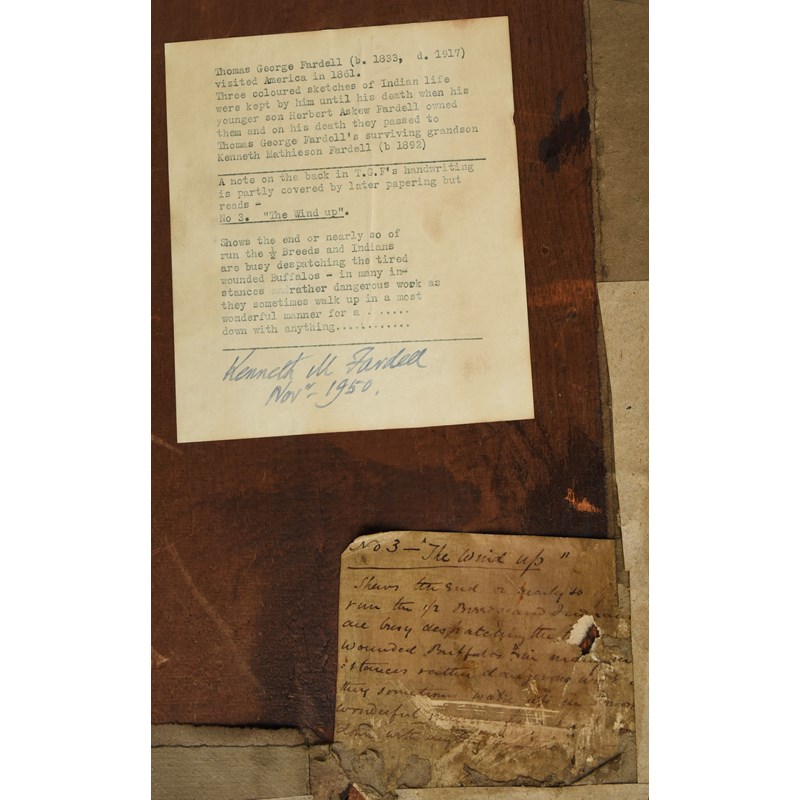 Thomas George Fardell (b. 1833, d. 1917)
visited America in 1861.
Three coloured sketches of Indian life
were kept by him until his death when his
younger son Herbert Askew Fardell owned
them and on his death they passed to
Thomas George Fardell's surviving grandson
Kenneth Mathieson Fardell (b 1892)
A note on the back in T.G.F's handwriting
is partly covered by later papering but
reads -
No 3. "The Wind up".
Shows the end or nearly so of
run the ½ Breeds and Indians
are busy despatching the tired
wounded Buffalos - in many in-
stances rather dangerous work as
they sometimes walk up in a most
wonderful manner for a . .....
down with anything............
Kenneth M Fardell
Novr - 1950.
No 3 - "The Wind up"
Shows the end or nearly so
run the 1/2 Breeds and Indians
are busy despatching the
wounded Buffalos - in many in
stances rather dangerous work
they sometimes walk up in a most
wonderful
down with anything